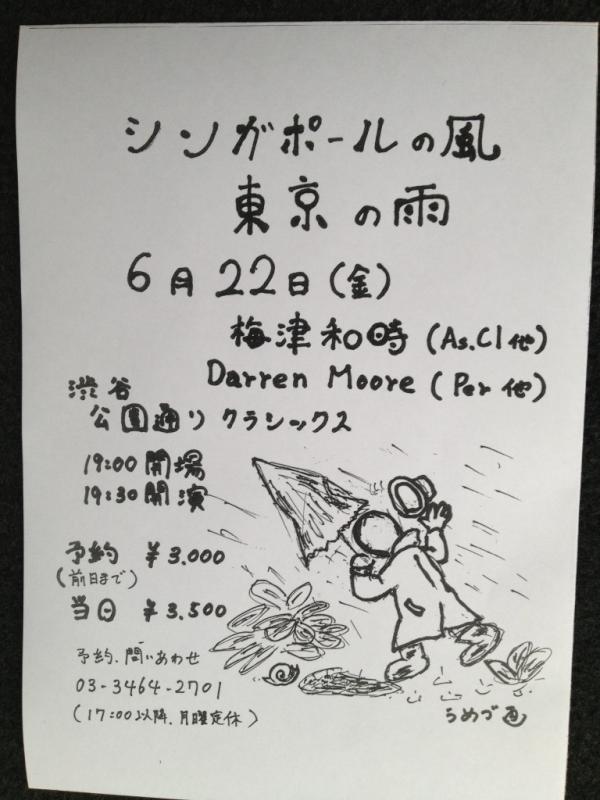 シンガポールの風
東京の雨
6月22日(金)
梅津和時(As.Cl他)
Darren Moore(Per他)
渋谷
公園通りクラシックス
19:00開場
19:30開演
予約 ¥3.000
(前日まで)
当日 ¥3.500
予約.問いあわせ
03-3464-2701
(17:00以降.月曜定休)
うめづ画